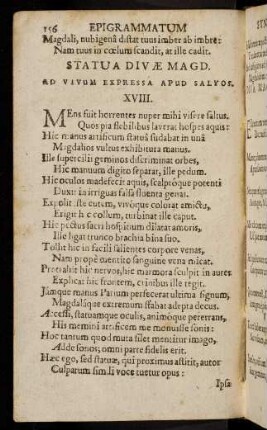 156 EPIGRAMMATUM
Magdali, nubigenâ distat tuus imber ab imbre:
Nam tuus in cœlum scandit, at ille cadit.
STATUA DIVÆ MAGD.
AD VIVUM EXPRESSA APUD SALVOS.
XVIII.
MEns fuit horrentes nuper mihi visere saltus.
Quos pia flebilibus lavraas hospes aquis:
Hic manus artificum statuâ sudabat in unâ
Magdalios vultus exhibitura manus.
Ille supercilii geminos discriminat orbes,
Hic manuum digito separat, ille pedum.
Hic oculos madefecit aquis, scalproque potenti
Duxit in irriguas falsa fluenta genas.
Expolit iste cutem, vivoque colorat amictu,
Erigit hic collum, turbinat ille caput.
Hic pectus sacri hospitium dilatat amoris,
Ille ligat trunco brachia bina suo.
Tollit hic in facili salientes corpore venas,
Nam propè cuentito sanguine vena micat.
Protrahit hic nervos, hic marmora sculpit in aures
Explicat hic frontem, crinibus ille tegit.
Jamque manus Parium perfecerat ultima signum,
Magdalisque extremum stabat adepta decus.
Accessi, statuamque oculis, animoque pererrans,
His memini artificem me monuisse sonis:
Hoc tantum quod muta silet mentitur imago,
Adde sonos, omni parte fidelis erit.
Hæc ego, sed statuæ, qui proximus astitit, autor
Culparum simili voce tuetur opus:
Ipsa